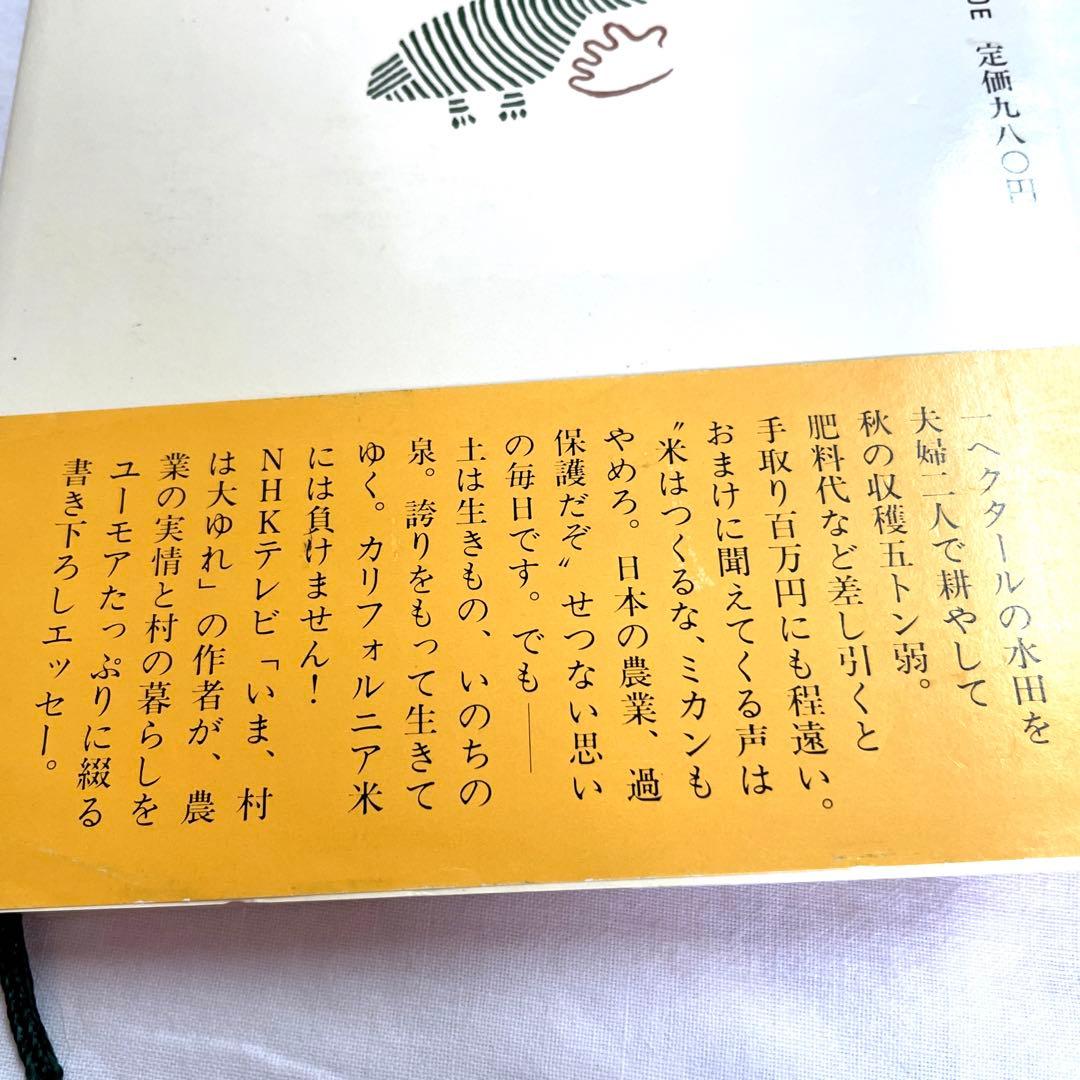 DE 定価九八〇円
一ヘクタールの水田を
夫婦二人で耕やして
秋の収穫五トン弱。
肥料代など差し引くと
手取り百万円にも程遠い。
おまけに聞えてくる声は
〝米はつくるな、ミカンも
やめろ。日本の農業、過
保護だぞ〟せつない思い
の毎日です。でも——
土は生きもの、いのちの
泉。誇りをもって生きて
ゆく。カリフォルニア米
には負けません！
NHKテレビ「いま、村
は大ゆれ」の作者が、農
業の実情と村の暮らしを
ユーモアたっぷりに綴る
書き下ろしエッセー。